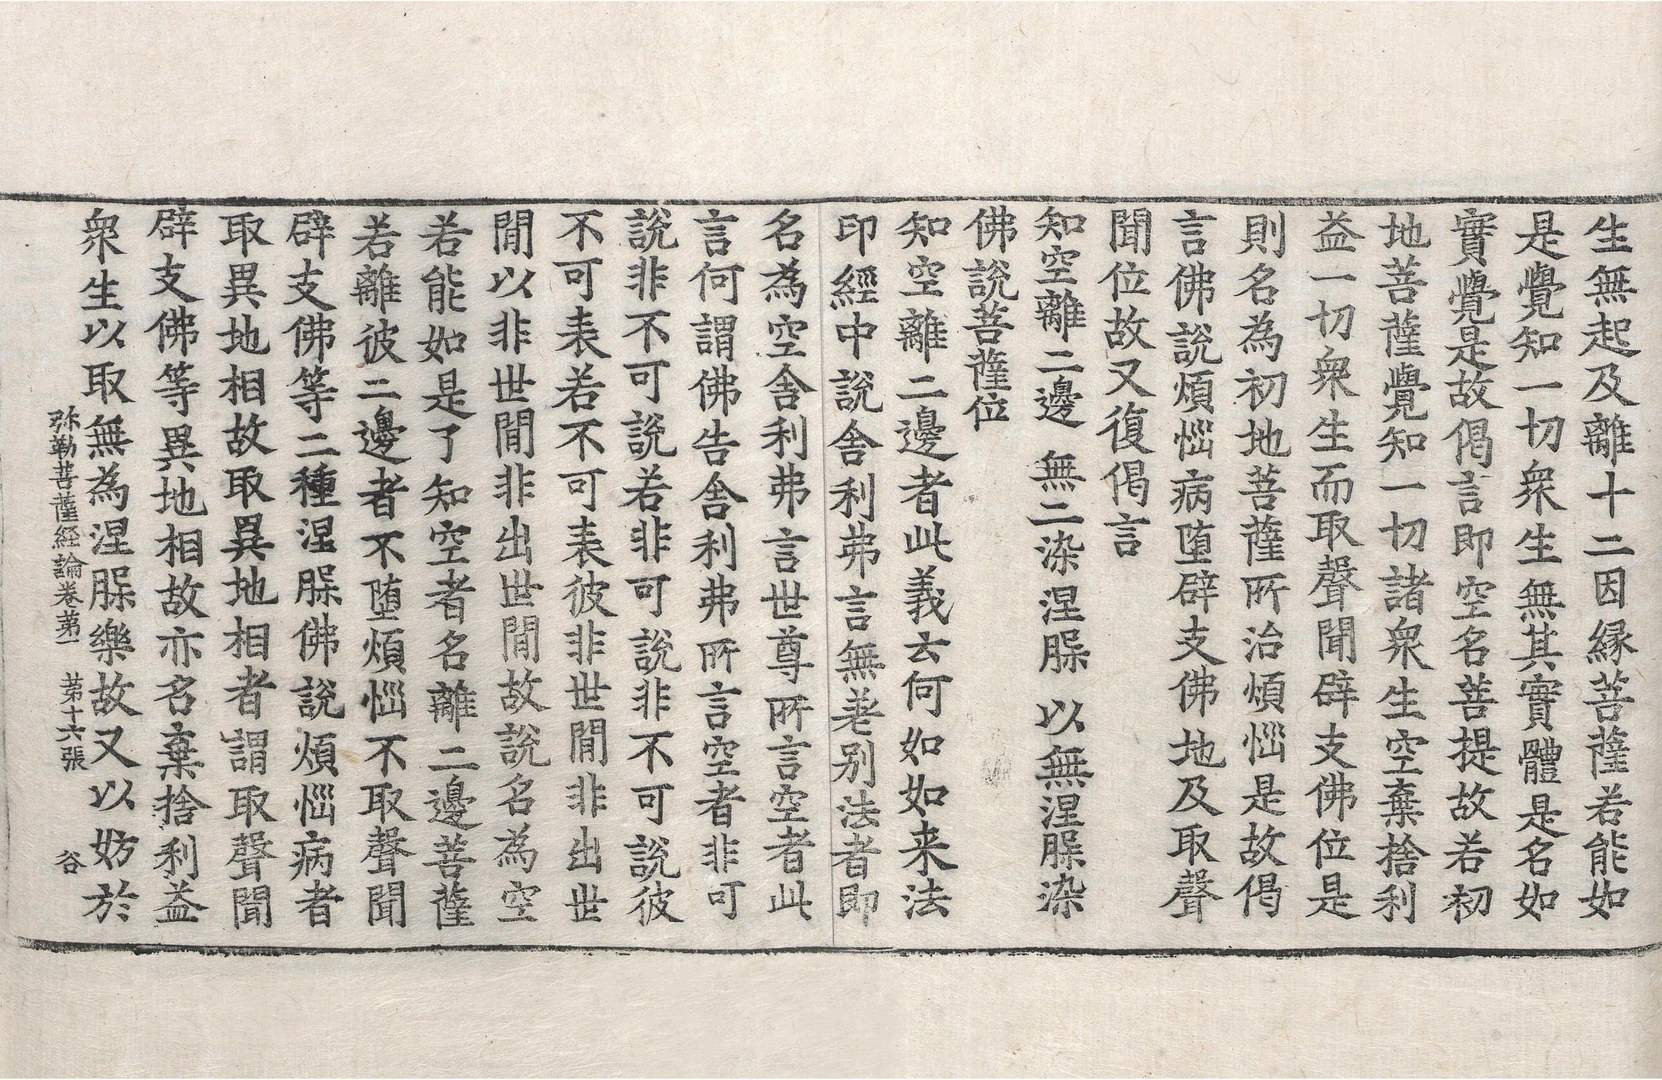 生無起及離十二因縁菩薩若能如
是覺知一切衆生無其實體是名如
實覺是故偈言即空名菩提故若初
地菩薩覺知一切諸衆生空棄捨利
益一切衆生而取聲聞辟支佛位是
則名為初地菩薩所治煩惱是故偈
言佛說煩惱病墮辟支佛地及取聲
聞位故又復偈言
知空離二邊 無二染涅槃 以無涅槃染
佛說菩薩位
知空離二邊者此義云何如如来法
印經中說舍利弗言無差别法者即
名為空舍利弗言世尊所言空者此
言何謂佛告舍利弗所言空者非可
說非不可說若非可說非不可說彼
不可表若不可表彼非世間非出世
間以非世間非出世間故說名為空
若能如是了知空者名離二邊菩薩
若離彼二邊者不墮煩惱不取聲聞
辟支佛等二種涅槃佛說煩惱病者
取異地相故取異地相者謂取聲聞
辟支佛等異地相故亦名棄捨利益
衆生以取無為涅槃樂故又以妨於
弥勒菩薩経論卷苐一 苐十六張 谷